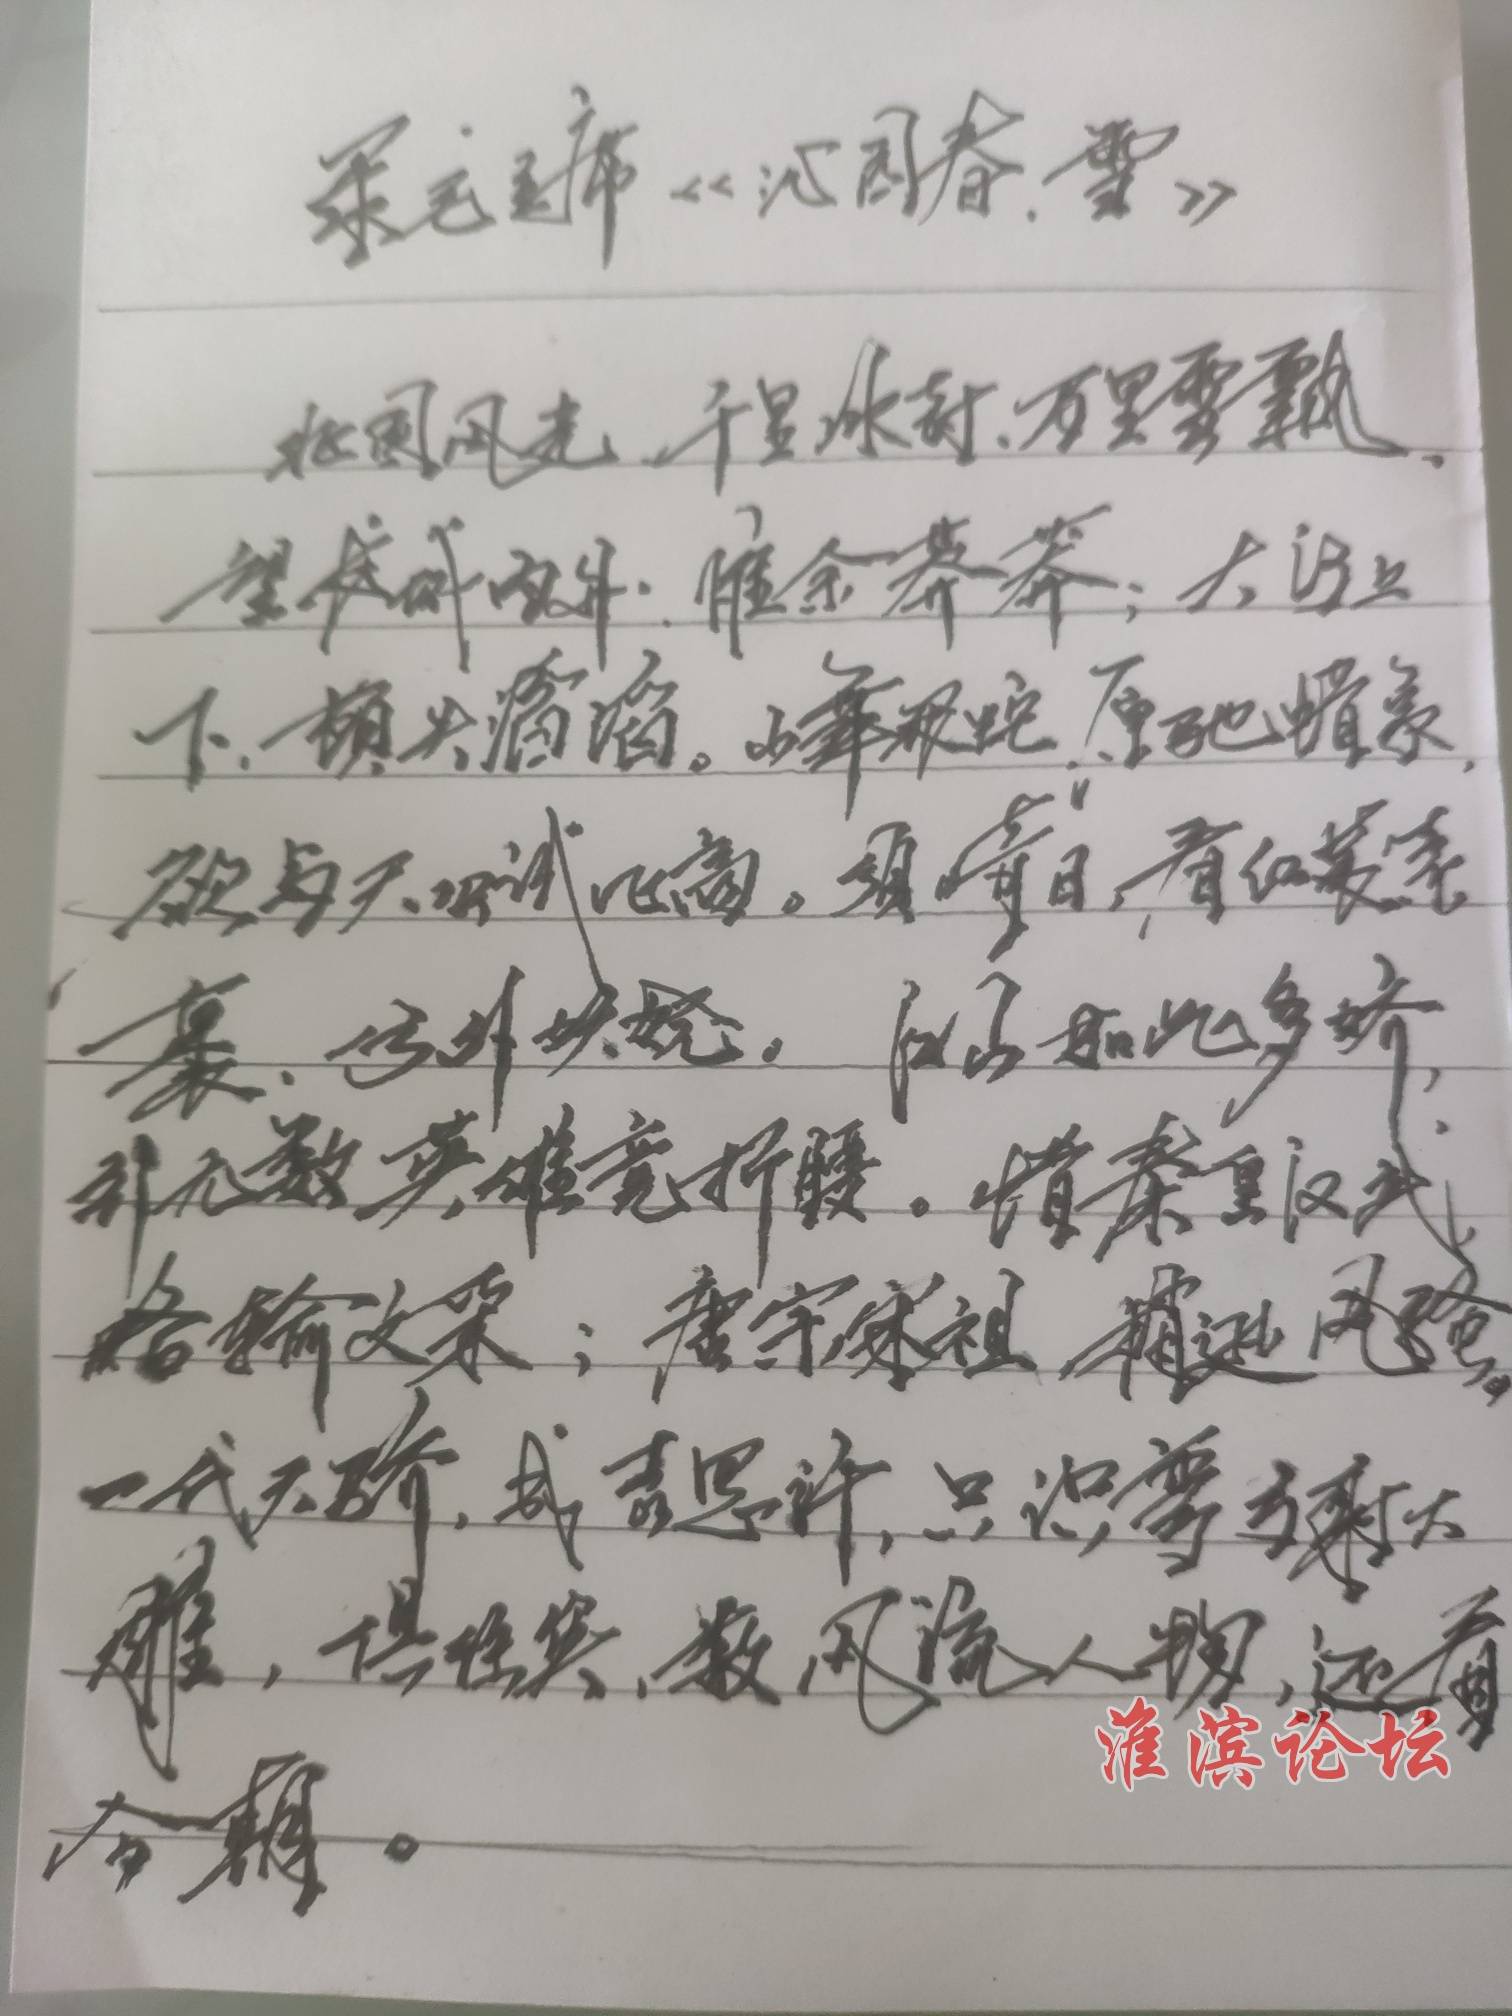 录毛主席《沁园春.雪》
北国风光、千里冰封、万里雪飘、
望长城内外、惟余莽莽；大河上
下、顿失滔滔。山舞银蛇、原驰蜡象、
欲与天公试比高。须晴日、看红装素
裹、分外妖娆。江山如此多娇，
引无数英雄竞折腰。惜秦皇汉武，
略输文采；唐宗宋祖、稍逊风骚。
一代天骄，成吉思汗，只识弯弓射大
雕，俱往矣、数风流人物，还看
今朝。
淮滨论坛